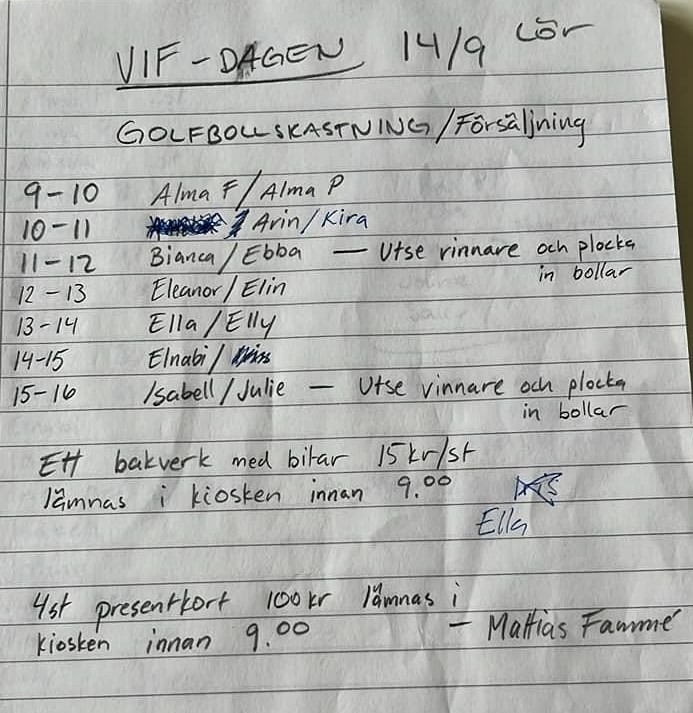 VIF-DAGEN 14/9 Lör
GOLFBOLLSKASTNING/Försäljning
9-10 Alma F/Alma P
10-11 / Arin/Kira
11-12 Bianca/Ebba — Utse vinnare och plocka
in bollar
12-13 Eleanor/Elin
13-14 Ella/Elly
14-15 Elnabi/
15-16 Isabell/Julie — Utse vinnare och plocka
in bollar
Ett bakverk med bitar 15kr/st
lämnas i kiosken innan 9.00
Ella
4st presentkort 100kr lämnas i
kiosken innan 9.00 — Mattias Fammé